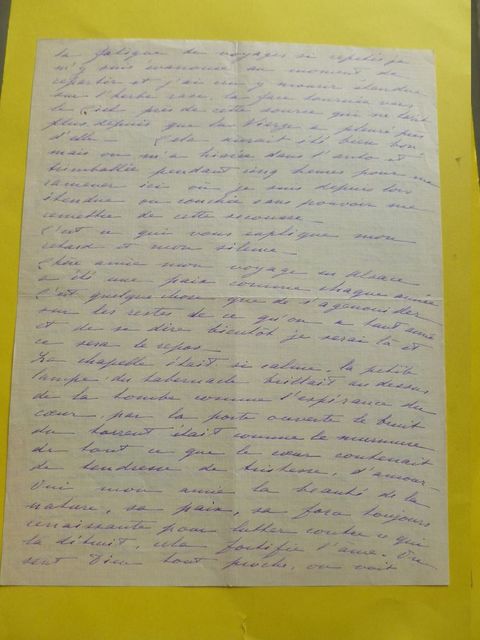 la fatigue de voyages si répétés je
m'y suis évanouie au moment de
repartir et j'ai cru y mourir étendue
sur l'herbe rase, la face tournée vers
le Ciel près de cette source qui ne tarit
plus depuis que la Vierge a pleuré près
d'elle. Cela aurait été bien bon
mais on m'a hissée dans l'auto et
trimballée pendant cinq heures pour me
ramener ici où je suis depuis lors
étendue ou couchée sans pouvoir me
remettre de cette secousse.
C'est ce qui vous explique mon
retard et mon silence.
Chère amie mon voyage en Alsace
a été une paix comme chaque année
C'est quelque chose que de s'agenouiller
sur les restes de ce qu'on a tant aimé
et de se dire bientôt je serai là et
ce sera le repos.
La chapelle était si calme, la petite
lampe du tabernacle brillait au dessus
de la tombe comme l'espérance du
cœur, par la porte ouverte le bruit
du torrent était comme le murmure
de tout ce que le cœur contenait
de tendresse de tristesse, d'amour.
Oui mon amie la beauté de la
nature, sa paix, sa force toujours
renaissante pour lutter contre ce qui
la détruit, cela fortifie l'âme. On
sent Dieu tout proche, on voit